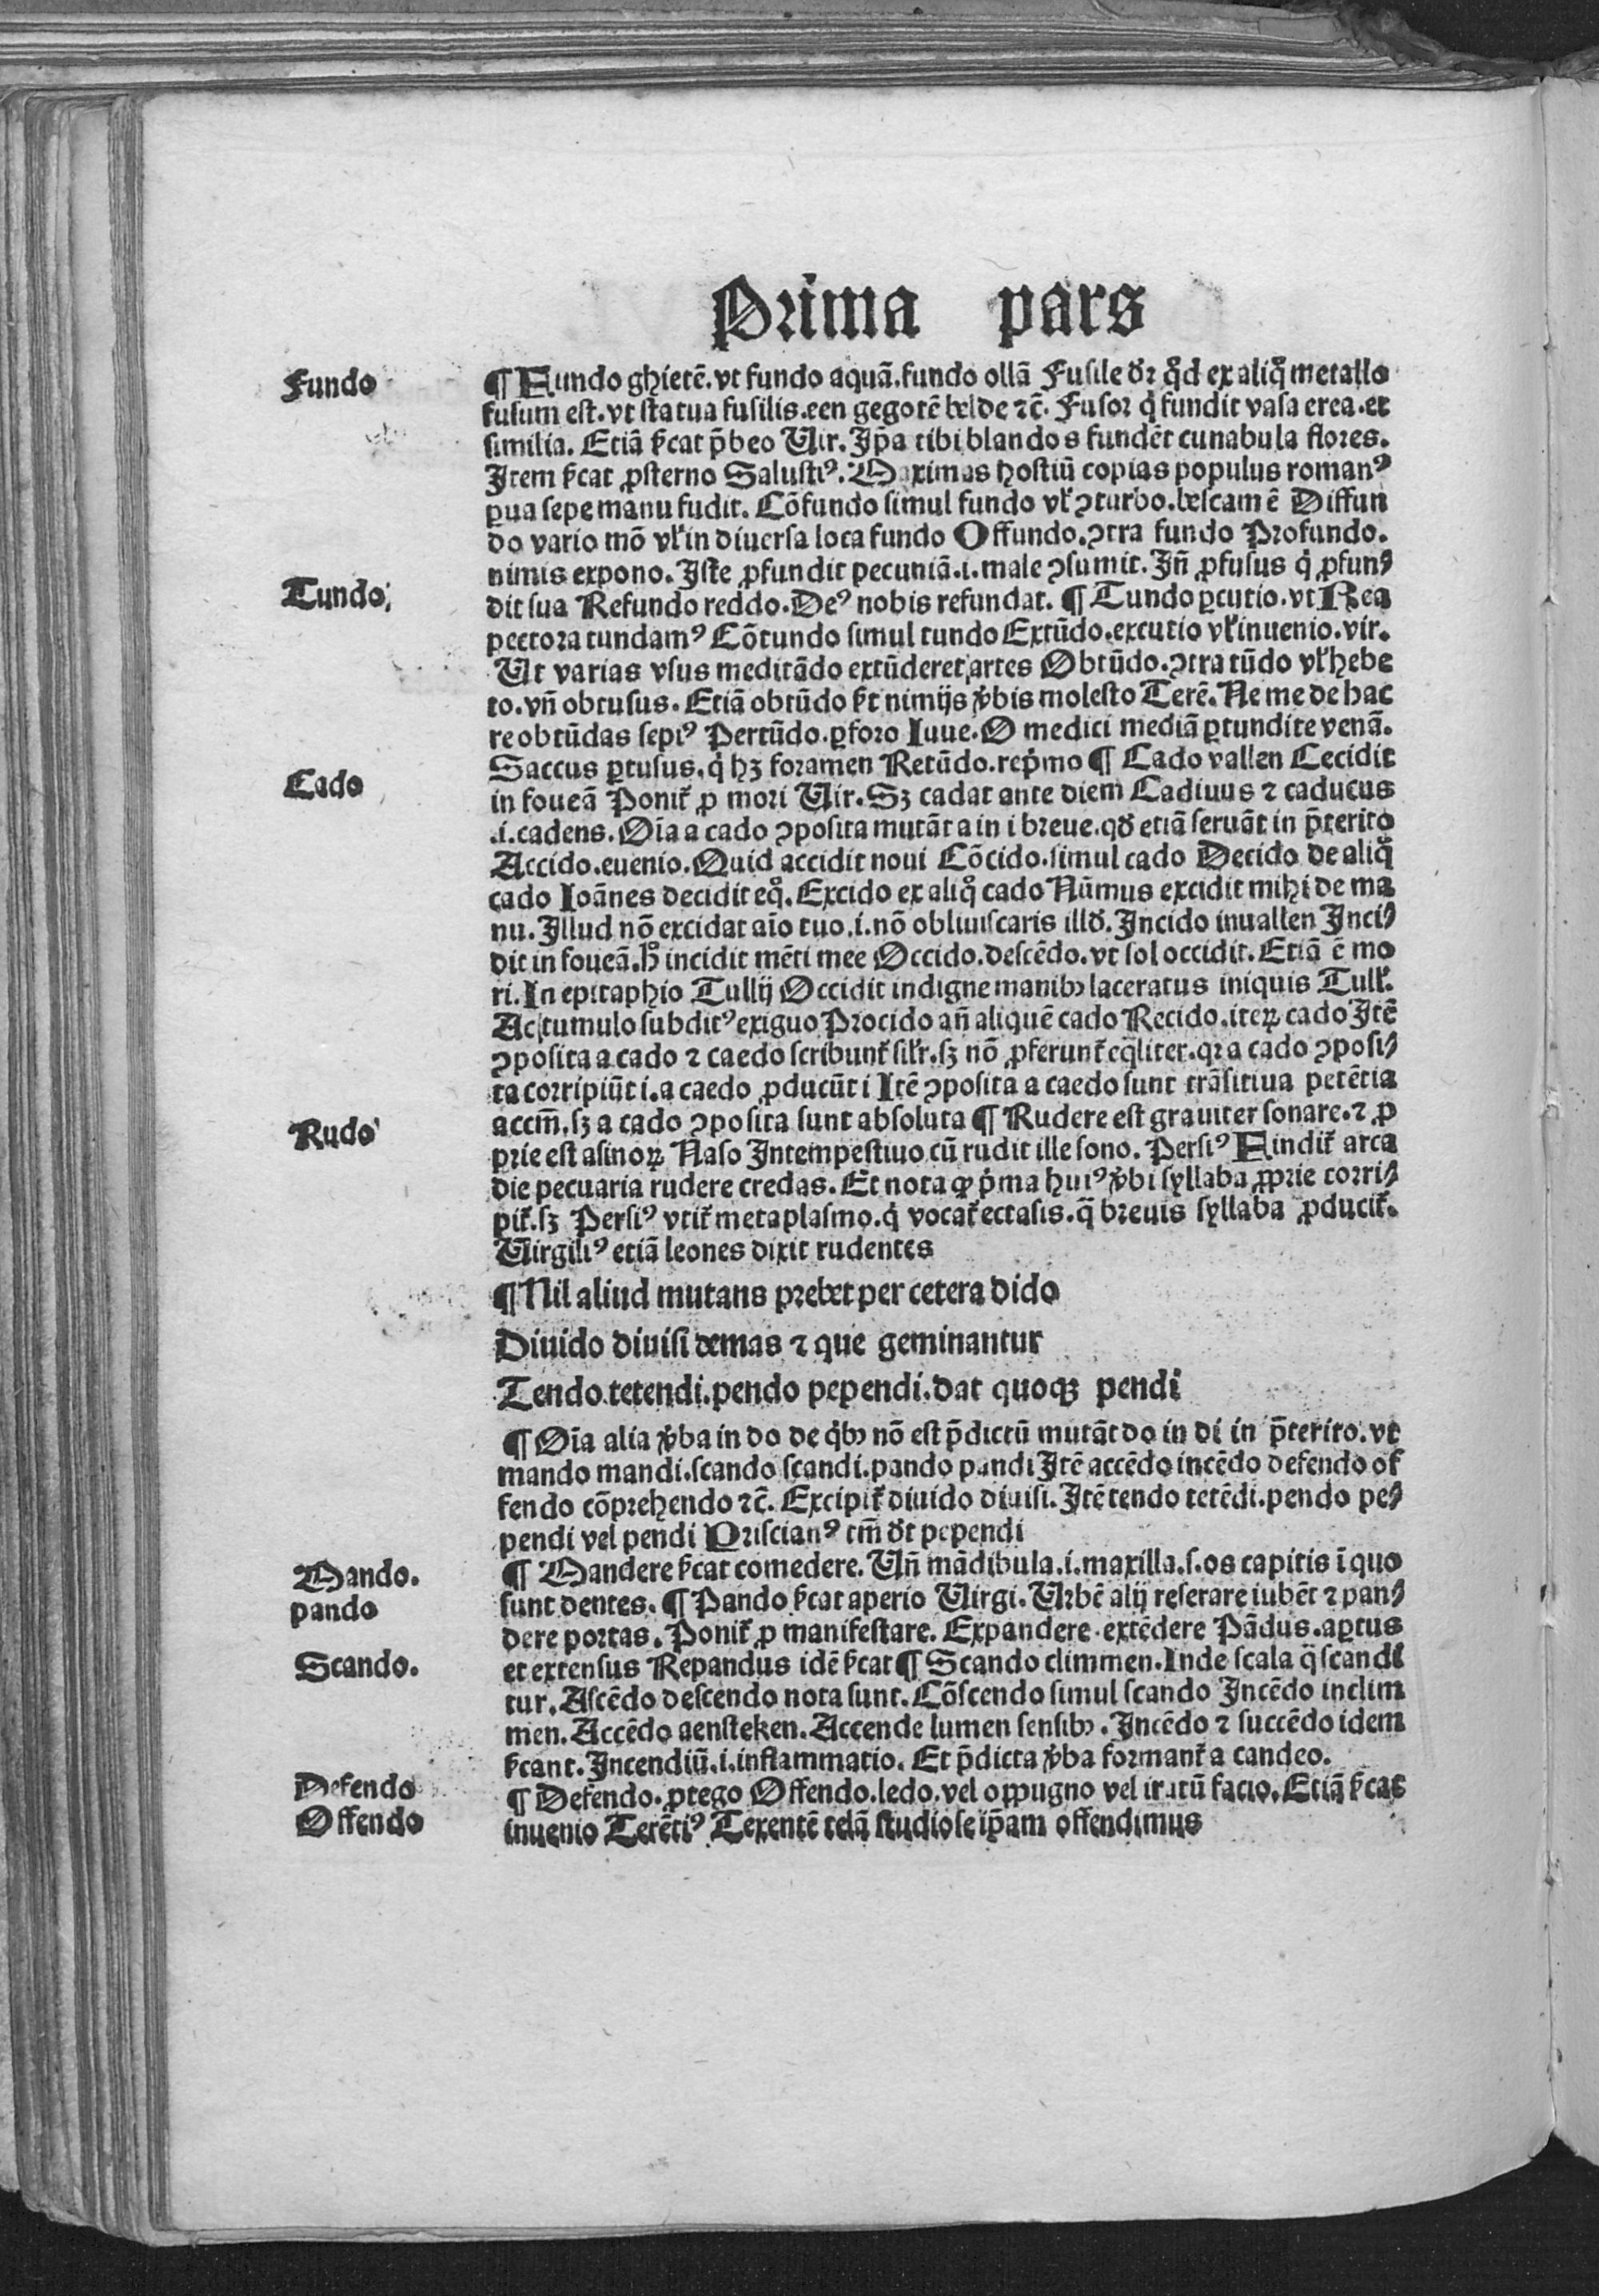 Prima pars
Fundo
¶ Fundo ghietē. vt fundo aquā. fundo ollā Fusile dr̄ qd̊ ex aliq̊ metallo
fusum est. vt statua fusilis. een gegotē belde ⁊c̄. Fusor q̇ fundit vasa erea. et
similia. Etiā ſcat p̄beo Vir. Ip̄a tibi blandos fundēt cunabula flores.
Item ſcat ꝓsterno Salustiꝰ. Maximas hostiū copias populus romanꝰ
ꝑua sepe manu fudit. Cōfundo simul fundo vĺ ꝯturbo. bescamē Diffun
do vario mō vĺ in diuersa loca fundo Offundo. ꝯtra fundo Profundo.
nimis expono. Iste ꝓfundit pecuniā. i. male ꝯsumit. Iñ ꝓfusus q̇ ꝓfun⸗
Tundo
dit sua Refundo reddo. Deꝰ nobis refundat. ¶ Tundo ꝑcutio. vt Rea
pectora tundamꝰ Cōtundo simul tundo Extūdo. excutio vĺ inuenio. vir.
Ut varias vsus meditādo extūderet artes Obtūdo. ꝯtra tūdo vĺ hebe
to. vñ obtusus. Etiā obtūdo ſt nimijs v̓bis molesto Terē. Ne me de hac
re obtūdas sepiꝰ Pertūdo. ꝑforo Iuue. O medici mediā ꝑtundite venā.
Saccus ꝑtusus. q̇ hꝫ foramen Retūdo. rep̓mo ¶ Cado vallen Cecidit
Cado
in foueā Ponit̄ ꝓ mori Vir. Sꝫ cadat ante diem Cadiuus ⁊ caducus
.i. cadens. Oīa a cado ꝯposita mutāt a in i breue. qd̓ etiā seruāt in p̄terito
Accido. euenio. Quid accidit noui Cōcido. simul cado Decido de aliq̊
cado Ioānes decidit eq̊. Excido ex aliq̊ cado Nūmus excidit mihi de ma
nu. Illud nō excidat aīo tuo. i. nō obliuiscaris illd̓. Incido inuallen Inci⸗
dit in foueā. h̊ incidit mēti mee Occido. descēdo. vt sol occidit. Etiā ē mo
ri. In epitaphio Tullij Occidit indigne manibꝫ laceratus iniquis Tulĺ.
Ac tumulo subditꝰ exiguo Procido añ aliquē cado Recido. iteꝝ cado Itē
ꝯposita a cado ⁊ caedo scribunt̄ silr̄. sꝫ nō ꝓferunt̄ eq̄liter. qꝛ a cado ꝯposi⸗
ta corripiūt i. a caedo ꝓducūt i Itē ꝯposita a caedo sunt trāsitiua petētia
accm̄. sꝫ a cado ꝯposita sunt absoluta ¶ Rudere est grauiter sonare. ⁊ ꝓ
Rudo
prie est asinoꝝ Naso Intempestiuo cū rudit ille sono. Persiꝰ Findit̄ arca
die pecuaria rudere credas. Et nota ꝙ p̓ma huiꝰ v̓bi syllaba ꝓprie corri⸗
pit̄. sꝫ Persiꝰ vtit̄ metaplasmo. q̇ vocat̄ ectasis. q̄ breuis syllaba ꝓducit̄.
Virgiliꝰ etiā leones dixit rudentes
¶ Nil aliud mutans prebet per cetera dido
Diuido diuisi demas ⁊ que geminantur
Tendo. tetendi. pendo pependi. dat quoqꝫ pendi
¶ Oīa alia v̓ba in do de q̓bꝫ nō est p̄dictū mutāt do in di in p̄terito. vt
mando mandi. scando scandi. pando pandi Itē accēdo incēdo defendo of
fendo cōprehendo ⁊c̄. Excipit̄ diuido diuisi. Itē tendo tetēdi. pendo pe⸗
pendi vel pendi Priscianꝰ tm̄ d̓t pependi
Mando.
¶ Mandere ſcat comedere. Vñ mādibula. i. maxilla. s. os capitis ī quo
pando
sunt dentes. ¶ Pando ſcat aperio Virgi. Urbē alij reserare iubēt ⁊ pan⸗
dere portas. Ponit̄ ꝓ manifestare. Expandere extēdere Pādus. aꝑtus
Scando.
et extensus Repandus idē ſcat ¶ Scando climmen. Inde scala q̄ scandi
tur. Ascēdo descendo nota sunt. Cōscendo simul scando Incēdo inclim
men. Accēdo aensteken. Accende lumen sensibꝫ. Incēdo ⁊ succēdo idem
ſcant. Incendiū. i. inflammatio. Et p̄dicta v̓ba formant̄ a candeo.
Defendo
¶ Defendo. ꝓtego Offendo. ledo. vel oppugno vel iratū facio. Etiā ſcat
Offendo
inuenio Terētiꝰ Texentē telā studiose ip̄am offendimus